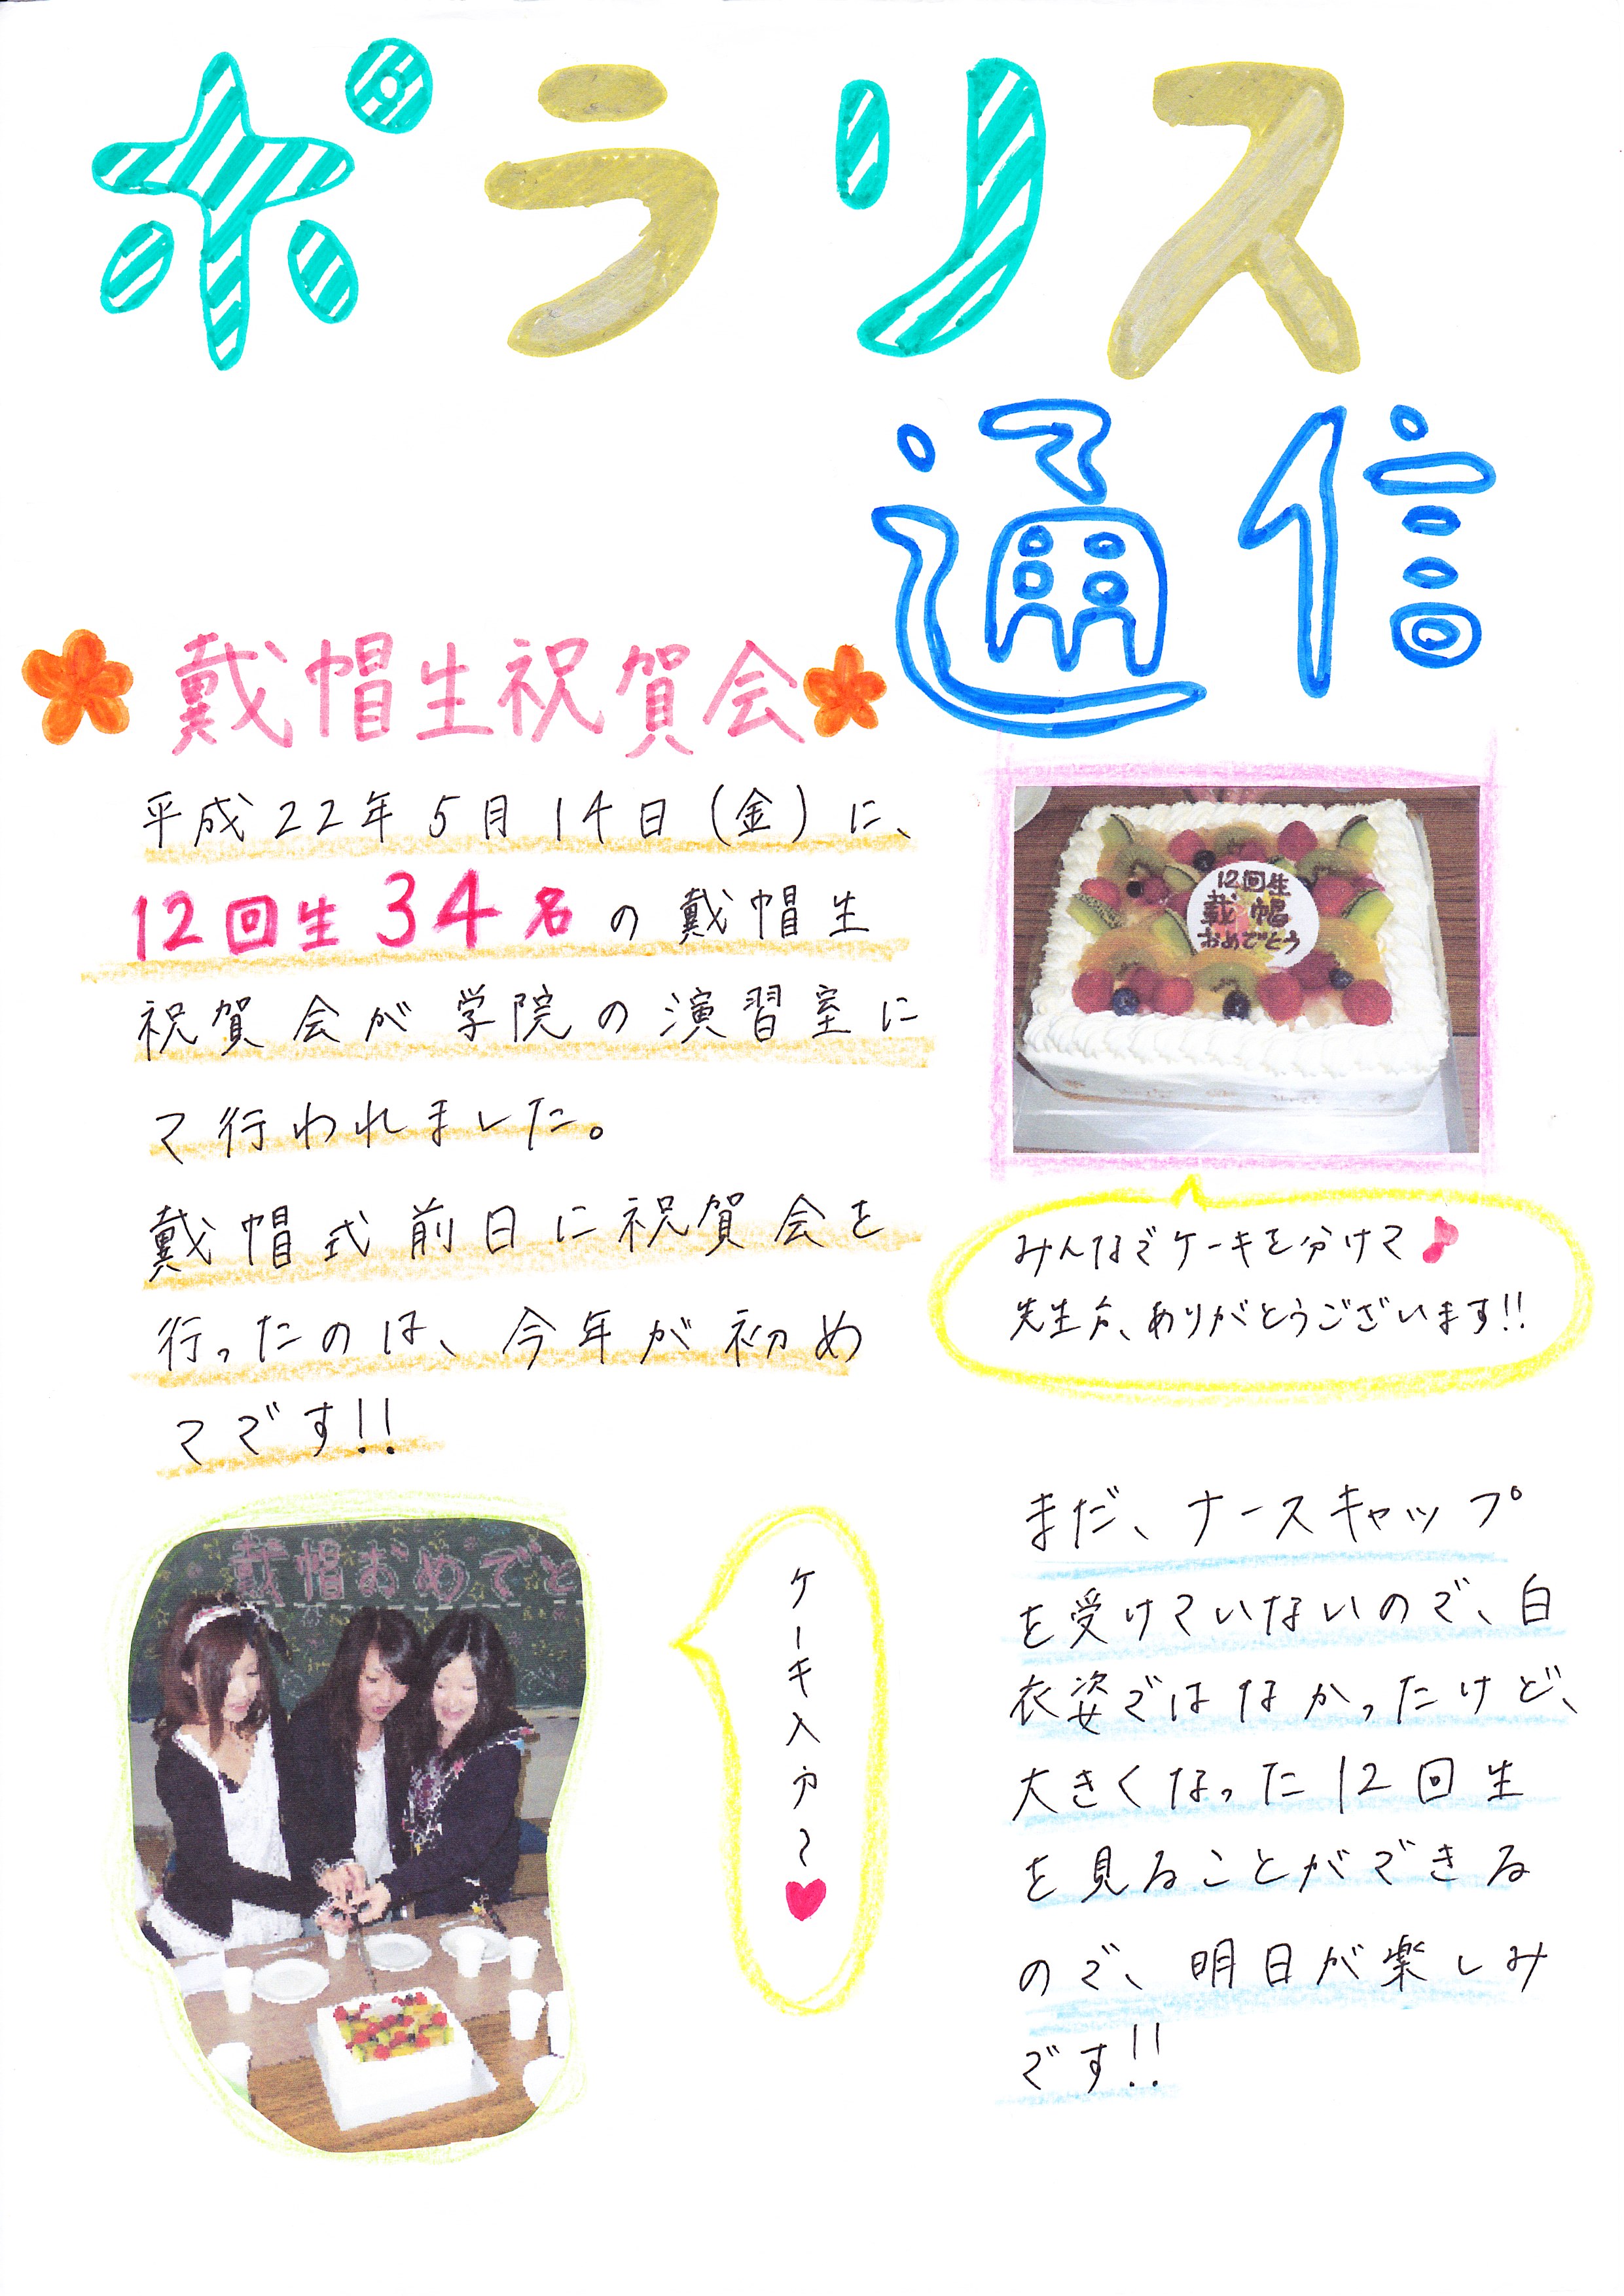 ポラリス
通信
戴帽生祝賀会
平成22年5月14日(金)に、
12回生34名の戴帽生
祝賀会が学院の演習室に
て行われました。
戴帽式前日に祝賀会を
行ったのは、今年が初め
てです!!
12回生
戴帽
おめでとう
みんなでケーキを分けて♪
先生方、ありがとうございます!!
戴帽おめでと
ケーキ入刀〜♥
まだ、ナースキャップ
を受けていないので、白
衣姿ではなかったけど、
大きくなった12回生
を見ることができる
ので、明日が楽しみ
です!!